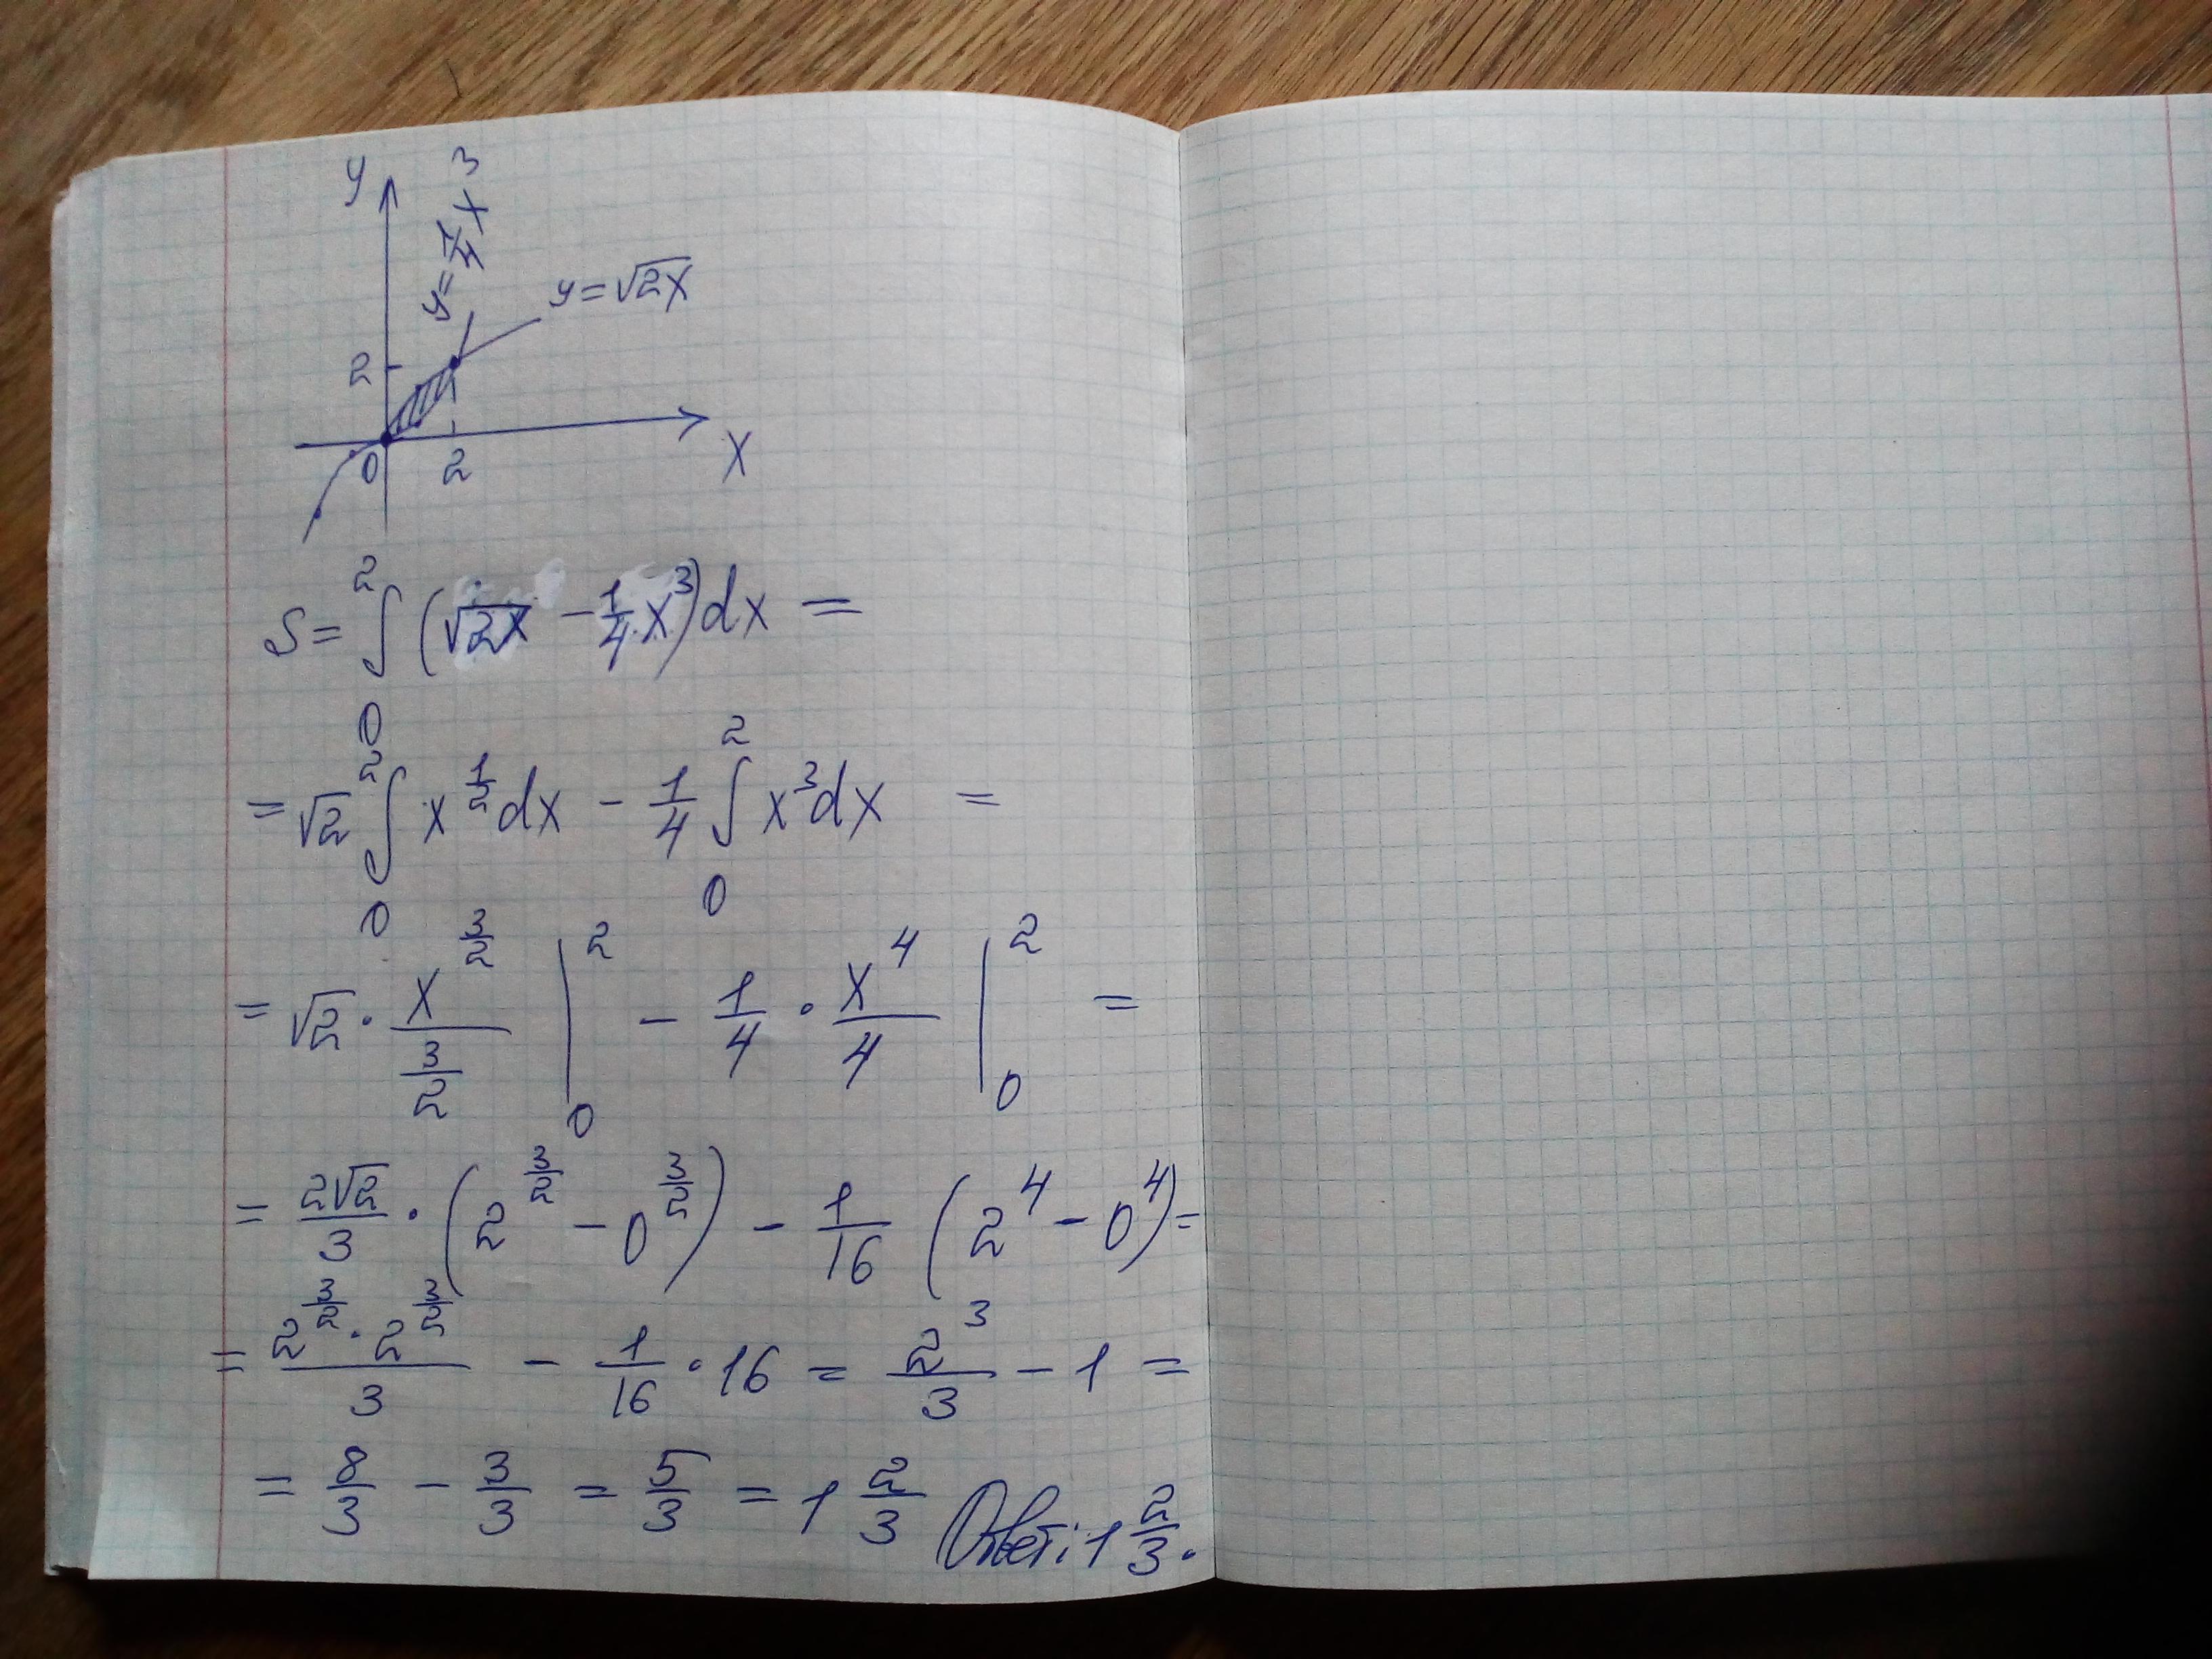 y
y = 1/4 x³
y = √2x
2
0
2
x
S = ∫₀² (√2x − 1/4 x³) dx =
= √2 ∫₀² x^(1/2) dx − 1/4 ∫₀² x³ dx =
= √2 · x^(3/2) / (3/2) |₀² − 1/4 · x⁴/4 |₀² =
= 2√2/3 · (2^(3/2) − 0^(3/2)) − 1/16 (2⁴ − 0⁴) =
= 2^(3/2) · 2^(3/2) / 3 − 1/16 · 16 = 2³/3 − 1 =
= 8/3 − 3/3 = 5/3 = 1 2/3 Ответ: 1 2/3.